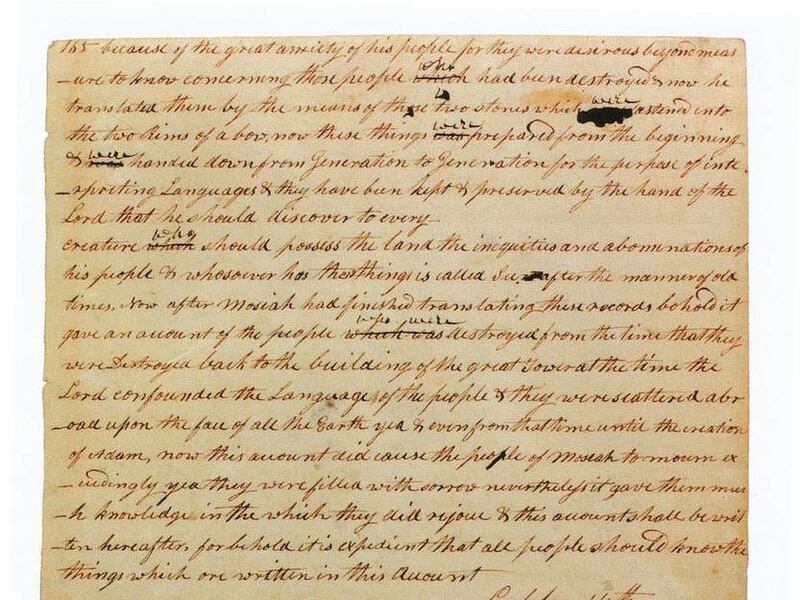 165 because of the great anxiety of his people for they were desirous beyond meas
-ure to know concerning those people which who had been destroyed & now he
translated them by the means of those two stones which were fastened into
the two Rims of a bow, now these things was were prepared from the beginning
& was were handed down from Generation to Generation for the purpose of inte
-rpriting Languages & they have been kept & preserved by the hand of the
Lord that he should discover to every
creature which who should possess the land the iniquities and abominations of
his people & whosoever has these things is called Seer after the manner of old
times. Now after Mosiah had finished translating these records behold it
gave an account of the people which was who were destroyed from the time that they
were Destroyed back to the building of the great Tower at the time the
Lord confounded the Language of the people & they were scattered abr
-oad upon the face of all the Earth yea & even from that time until the creation
of Adam, now this account did cause the people of Mosiah to mourn ex
-ceedingly yea they were filled with sorrow nevertheless it gave them muc
-h knowledge in the which they did rejoice & this account shall be writ
-ten hereafter, for behold it is expedient that all people should know the
things which are written in this Account